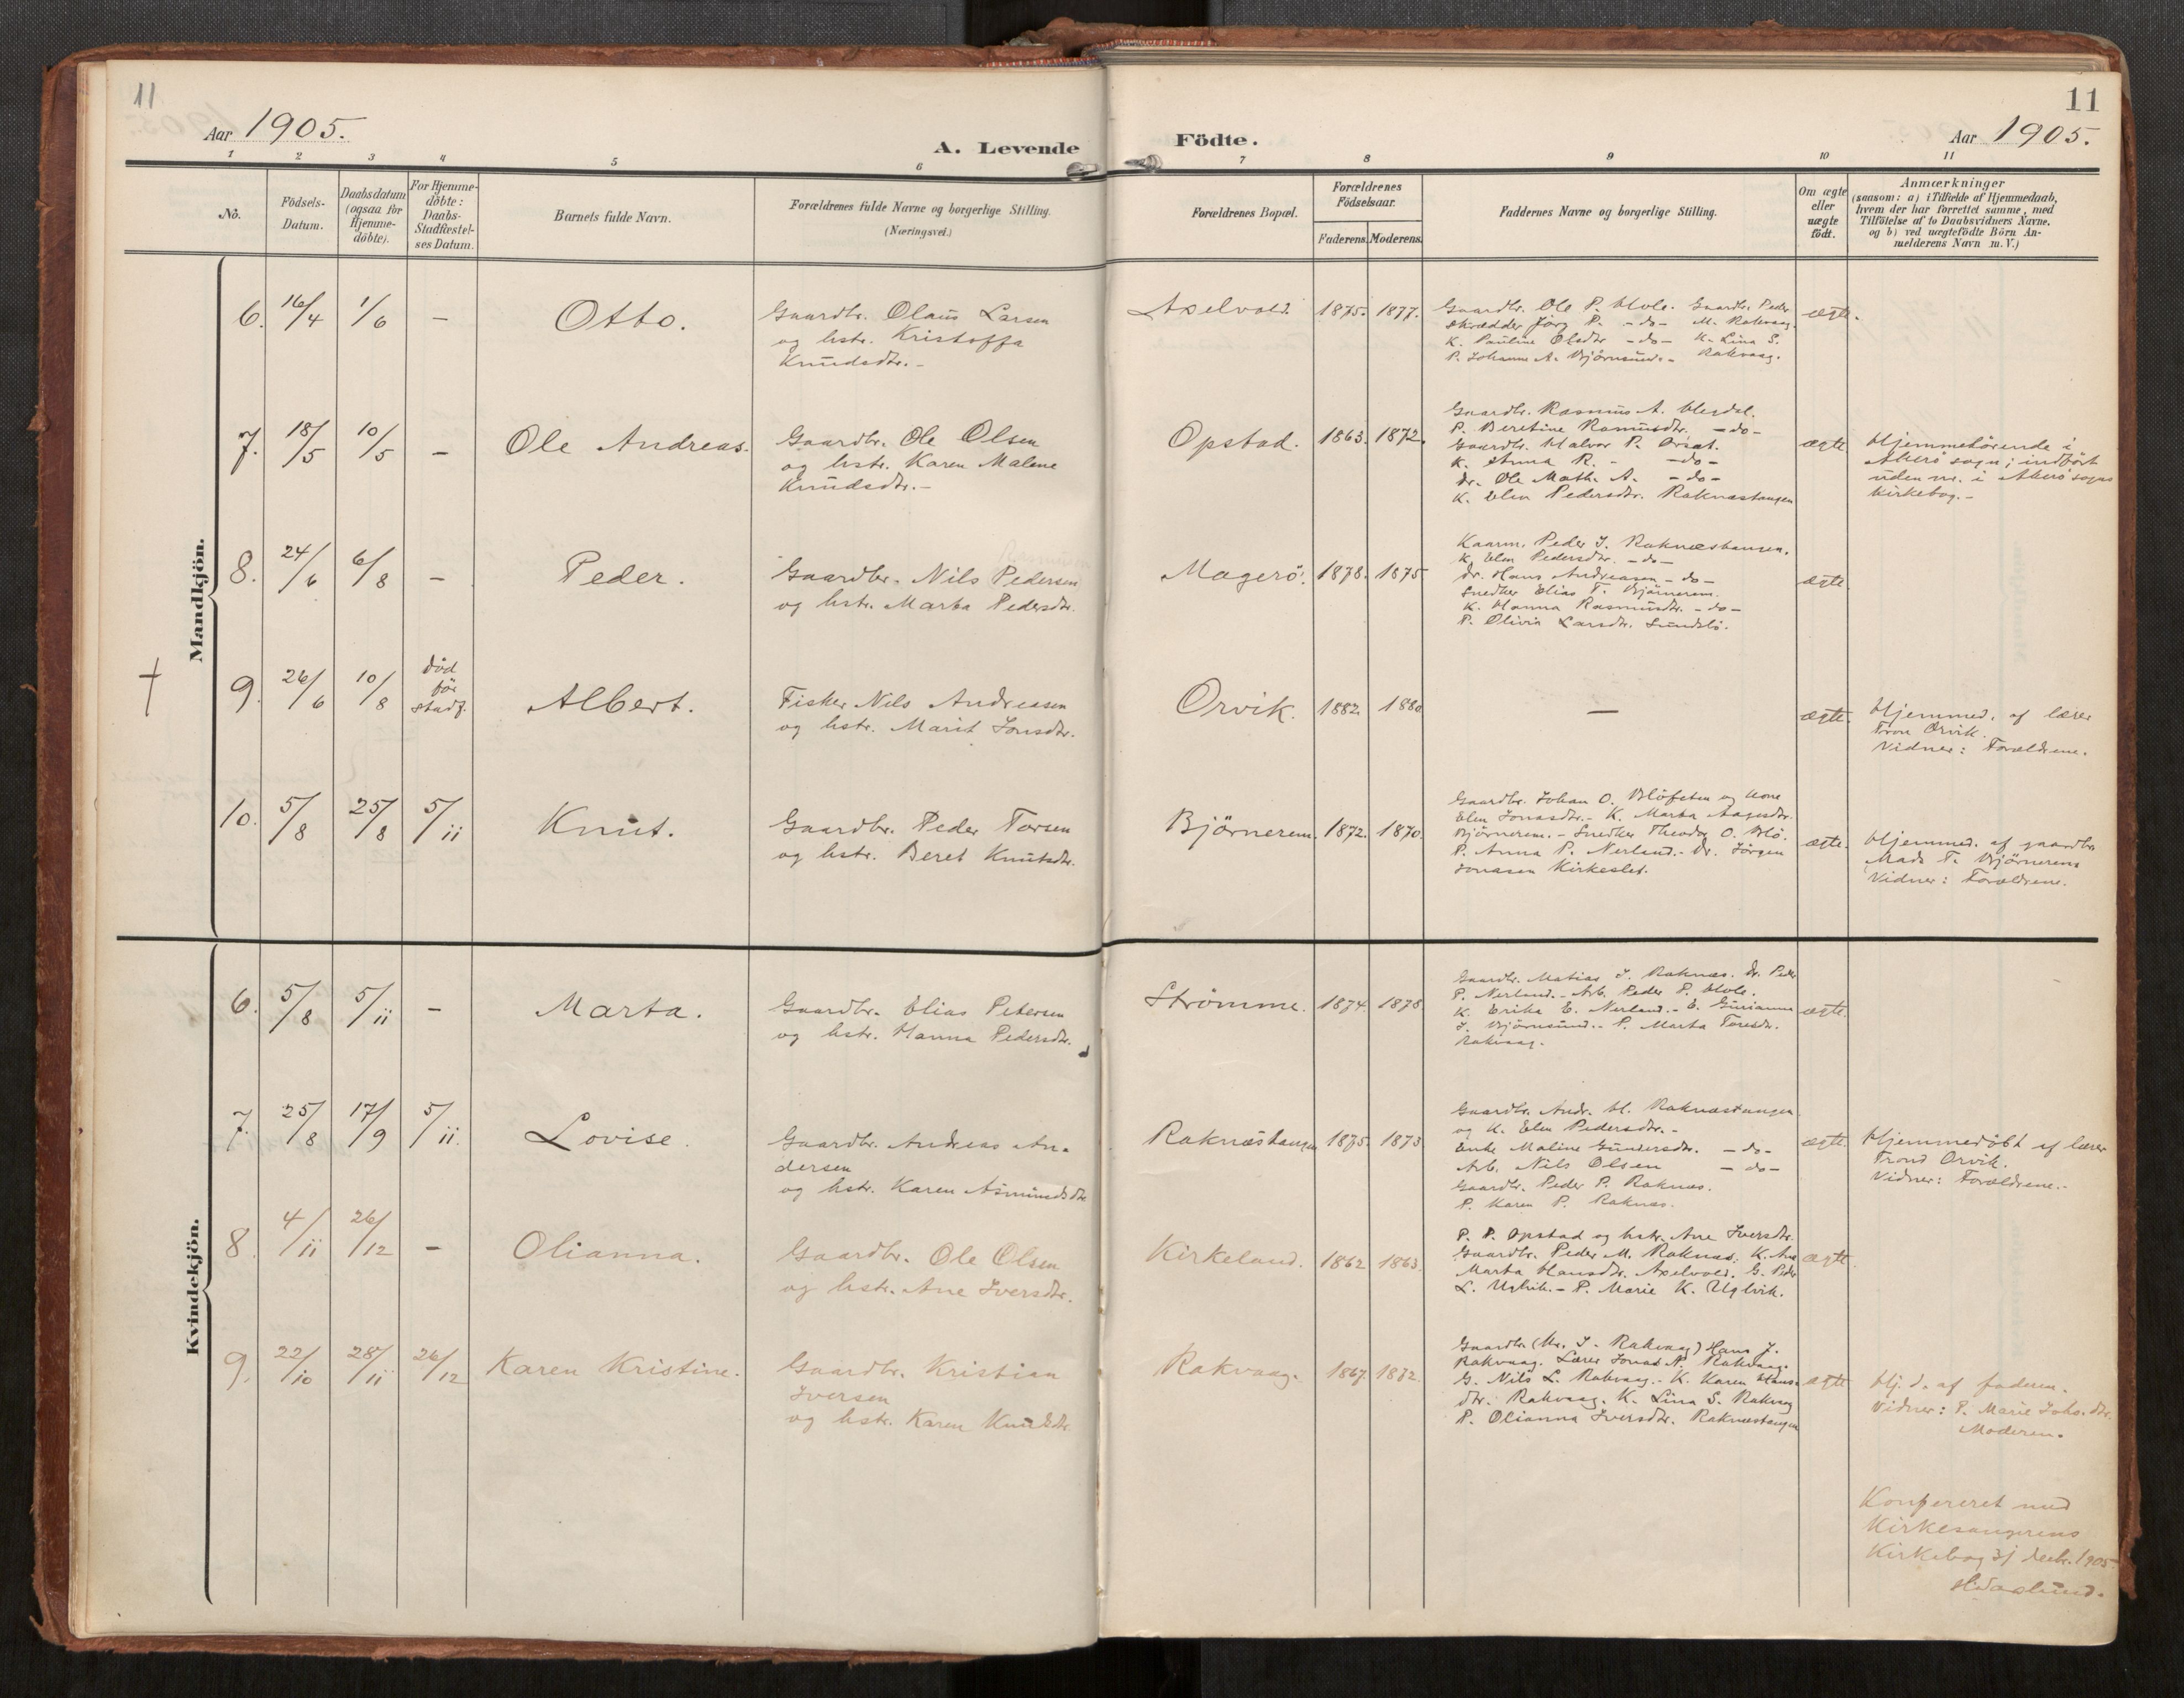 11
11
Aar 1905.
A. Levende Födte.
Aar 1905.
1 2 3 4 5 6 7 8 9 10 11
No.
Födsels-
Datum.
Daabsdatum
(ogsaa for
Hjemme-
döbte).
For Hjemme-
döbte:
Daabs-
Stadfæstel-
ses Datum.
Barnets fulde Navn.
Forældrenes fulde Navne og borgerlige Stilling.
(Næringsvei.)
Forældrenes Bopæl.
Forældrenes
Födselsaar.
Faderens. Moderens.
Faddernes Navne og borgerlige Stilling.
Om ægte
eller
uægte
födt.
Anmærkninger
(saasom: a) i Tilfælde af Hjemmedaab,
hvem der har forrettet samme, med
Tilföielse af to Daabsvidners Navne,
og b) ved uægtefödte Börn An-
melderens Navn m.V.)
Mandkjön.
6. 16/4 1/6 – Otto.
Gaardbr. Olaus Larsen
og hstr. Kristoffa
Knudsdtr. –
Axelvold. 1875. 1877.
Gaardbr. Ole P. Hole. Gaardbr. Peder
Skrædder Jörg P. – do – M. Rakvaag.
K. Pauline Olsdtr – do – K. Lina S.
P. Johanne A. Björnsund. – Rakvaag.
ægte.
7. 18/5 10/5 – Ole Andreas.
Gaardbr. Ole Olsen
og hstr. Karen Malene
Knudsdtr. –
Opstad. 1863. 1872.
Gaardbr. Rasmus A.
P. Beretine Rasmusdtr. – do –
Gaardbr. Halvor P.
K. Anna R. – – do –
Dr. Ole Math. A. – do –
K. Elen Pedersdtr. Raknæstangen
ægte.
Hjemmehörende i
Akerö sogn; indfört
uden nr. i Akerö sogns
kirkebog. –
8. 24/6 6/8 – Peder.
Gaardbr. Nils Pedersen
og hstr. Marta Pedersdtr.
Magerö. 1878. 1875
Kaarm. Peder J. Raknæstangen.
K. Elen Pedersdtr. – do –
Dr. Hans Andreasen – do –
Snedker Elias T. Björnerem.
K. Hanna Rasmusdtr. – do –
P. Olivia Larsdtr. Sundsbö.
ægte
† 9. 26/6 10/8 död
för
stadf.
Albert.
Fisker Nils Andreasen
og hstr. Marit Jonsdtr.
Orvik. 1882. 1880
–
ægte.
Hjemmed. af lærer
Tron Orvik.
Vidner: Forældrene.
10. 5/8 25/8 5/11 Knut.
Gaardbr. Peder Torsen
og hstr. Beret Knutsdtr.
Björnerem. 1872. 1870.
Gaardbr. Johan O. og kone
Elen Jonasdtr. – K. Marta Aagesdtr.
Björnerem. – Snedker Theodor O.
P. Anna P. Nerland. – Dr. Jörgen
Jonasen Kirkeslet.
ægte.
Hjemmed. af gaardbr.
Mads T. Björnerem
Vidner: Forældrene.
Kvindekjön.
6. 5/8 5/11 – Marta.
Gaardbr. Elias Petersen
og hstr. Hanna Pedersdtr.
Strömme. 1874. 1878
Gaardbr. Matias J. Raknæs. Dr. Peder
P. Nerland. – Arb. Peder P. Hole.
K. Erika E. Nerland. – E. Gurianna
J. Björnsund. – P. Marta Toresdtr.
Rakvaag.
ægte.
7. 25/8 17/9 5/11. Lovise.
Gaardbr. Andreas An-
dersen
og hstr. Karen Asmundsdtr
Raknæstangen 1875. 1873
Gaardbr. Andr. H. Raknæstangen
og K. Elen Pedersdtr. –
Enke Maline Gundersdtr. – do –
Arb. Nils Olsen – do –
Gaardbr. Peder P. Raknæs.
P. Karen P. Raknæs.
ægte.
Hjemmedöbt af lærer
Trond Orvik.
Vidner: Forældrene. –
8. 4/11 26/12 – Olianna.
Gaardbr. Ole Olsen
og hstr. Ane Iversdtr.
Kirkeland. 1862 1863.
P. P. Opstad og hstr. Ane Iversdtr.
Gaardbr. Peder M. Raknæs. K. Ane
Marta Hansdtr. Axelvold. G. Peder
L. Uglvik. – P. Marie K. Uglvik.
ægte.
9. 22/10 28/11 26/12 Karen Kristine.
Gaardbr. Kristian
Iversen
og hstr. Karen Knudsdtr.
Rakvaag. 1867. 1872.
Gaardbr. J. Rakvaag) Hans J.
Rakvaag. Lærer Jonas N. Rakvaag.
G. Nils L. Rakvaag. – K. Karen Hans-
dtr. Rakvaag. K. Lina S. Rakvaag
P. Olianna Iversdtr. Raknæstangen
ægte
Hj. d. af faderen.
Vidner: P. Marie Johs.dtr.
Moderen.
Konfereret med
Kirkesangerens
Kirkebog 31 decbr. 1905